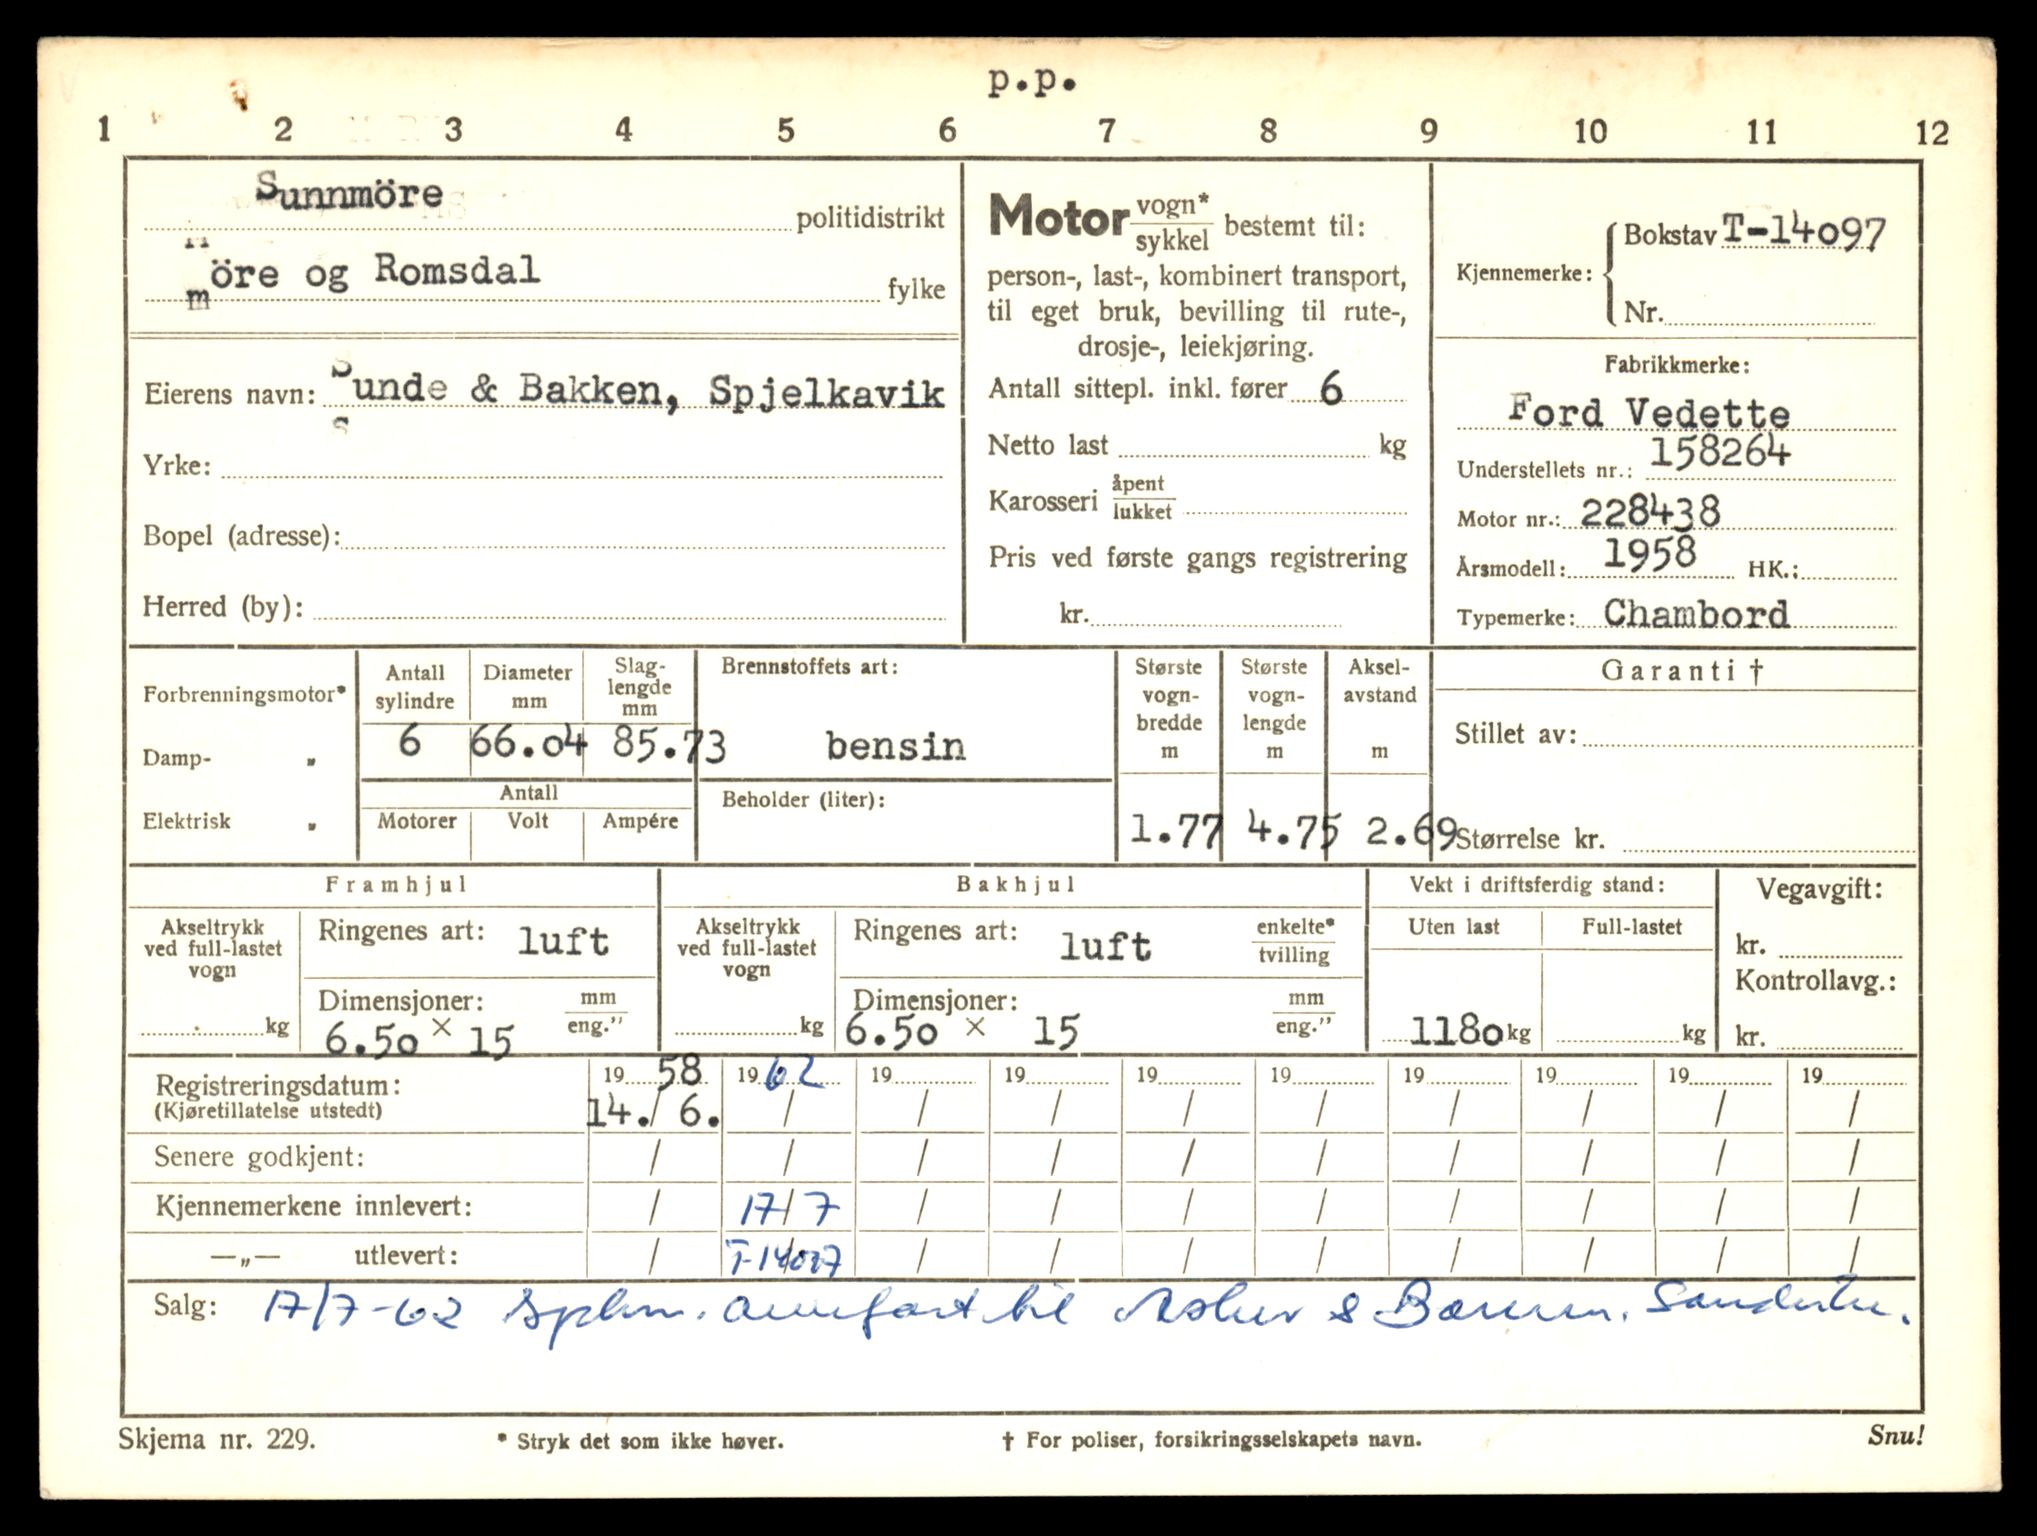 p.p.
1 2 3 4 5 6 7 8 9 10 11 12
Sunnmöre politidistrikt
möre og Romsdal fylke
Eierens navn: Sunde & Bakken, Spjelkavik
Yrke:
Bopel (adresse):
Herred (by):
Motor vogn*/sykkel bestemt til:
person-, last-, kombinert transport,
til eget bruk, bevilling til rute-,
drosje-, leiekjøring.
Antall sittepl. inkl. fører 6
Netto last kg
Karosseri åpent/lukket
Pris ved første gangs registrering
kr.
Kjennemerke: Bokstav T-14097
Nr.
Fabrikkmerke:
Ford Vedette
Understellets nr.: 158264
Motor nr.: 228438
Årsmodell: 1958 HK.:
Typemerke: Chambord
Forbrenningsmotor*
Damp- "
Elektrisk "
Antall sylindre 6
Diameter mm 66.04
Slaglengde mm 85.73
Antall
Motorer Volt Ampére
Brennstoffets art:
bensin
Beholder (liter):
Største vognbredde m 1.77
Største vognlengde m 4.75
Akselavstand m 2.69
Garanti †
Stillet av:
Størrelse kr.
Framhjul
Akseltrykk ved full-lastet vogn kg
Ringenes art: luft
Dimensjoner: mm/eng."
6.50 × 15
Bakhjul
Akseltrykk ved full-lastet vogn kg
Ringenes art: luft enkelte*/tvilling
Dimensjoner: mm/eng."
6.50 × 15
Vekt i driftsferdig stand:
Uten last Full-lastet
1180 kg kg
Vegavgift:
kr.
Kontrollavg.:
kr.
Registreringsdatum: 19 58 19 62 19 19 19 19 19 19 19 19
(Kjøretillatelse utstedt) 14./6. / / / / / / / / /
Senere godkjent: / / / / / / / / / /
Kjennemerkene innlevert: / 17/7 / / / / / / / /
—„— utlevert: / T-14097 / / / / / / / /
Salg: 17/7-62 til Asker & Bærum.
Skjema nr. 229. * Stryk det som ikke høver. † For poliser, forsikringsselskapets navn. Snu!